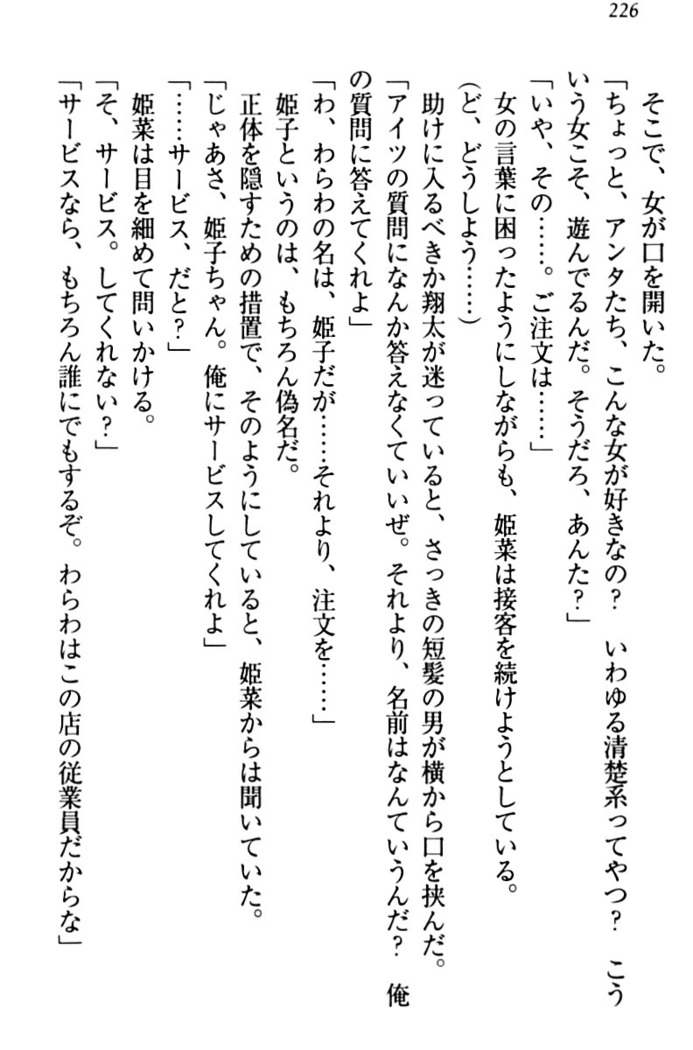 226
　そこで、女が口を開いた。
「ちょっと、アンタたち、こんな女が好きなの？　いわゆる清楚系ってやつ？　こう
いう女こそ、遊んでるんだ。そうだろ、あんた？」
「いや、その……。ご注文は……」
　女の言葉に困ったようにしながらも、姫菜は接客を続けようとしている。
(ど、どうしよう……)
　助けに入るべきか翔太が迷っていると、さっきの短髪の男が横から口を挟んだ。
「アイツの質問になんか答えなくていいぜ。それより、名前はなんていうんだ？　俺
の質問に答えてくれよ」
「わ、わらわの名は、姫子だが……それより、注文を……」
　姫子というのは、もちろん偽名だ。
　正体を隠すための措置で、そのようにしていると、姫菜からは聞いていた。
「じゃあさ、姫子ちゃん。俺にサービスしてくれよ」
「……サービス、だと？」
　姫菜は目を細めて問いかける。
「そ、サービス。してくれない？」
「サービスなら、もちろん誰にでもするぞ。わらわはこの店の従業員だからな」